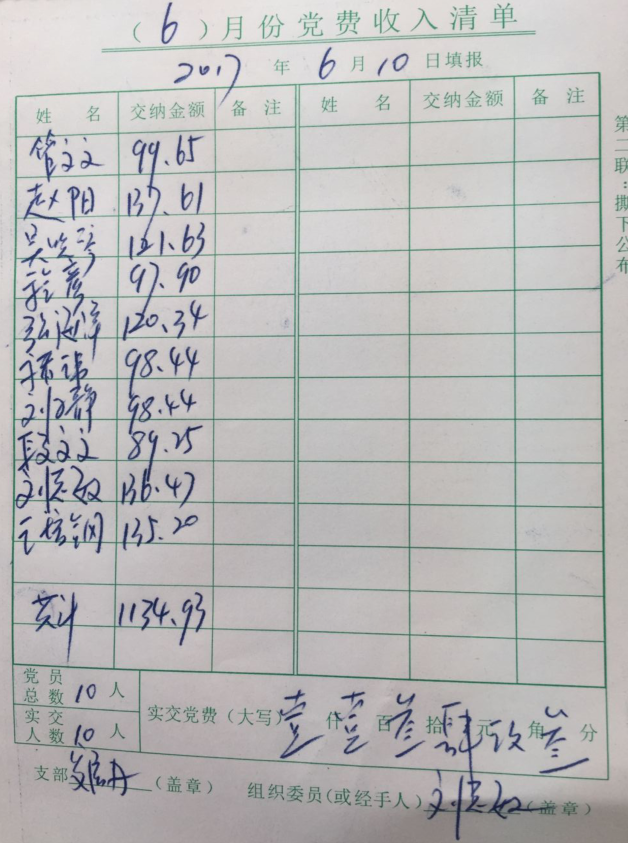 （6）月份党费收入清单
2017 年 6 月 10 日填报
姓 名 交纳金额 备 注 姓 名 交纳金额 备 注
管文文 99.65
赵阳 137.61
吴 121.63
彦 97.90
张海 120.34
98.44
刘静 98.44
段文文 89.25
刘志敏 136.47
王 钢 135.20
共计 1134.93
党员总数 10 人
实交人数 10 人
实交党费（大写）壹 仟 壹 百 叁 拾 肆 元 玖 角 叁 分
支部 （盖章） 组织委员(或经手人) 刘志敏 (盖章)
第二联：撕下公布